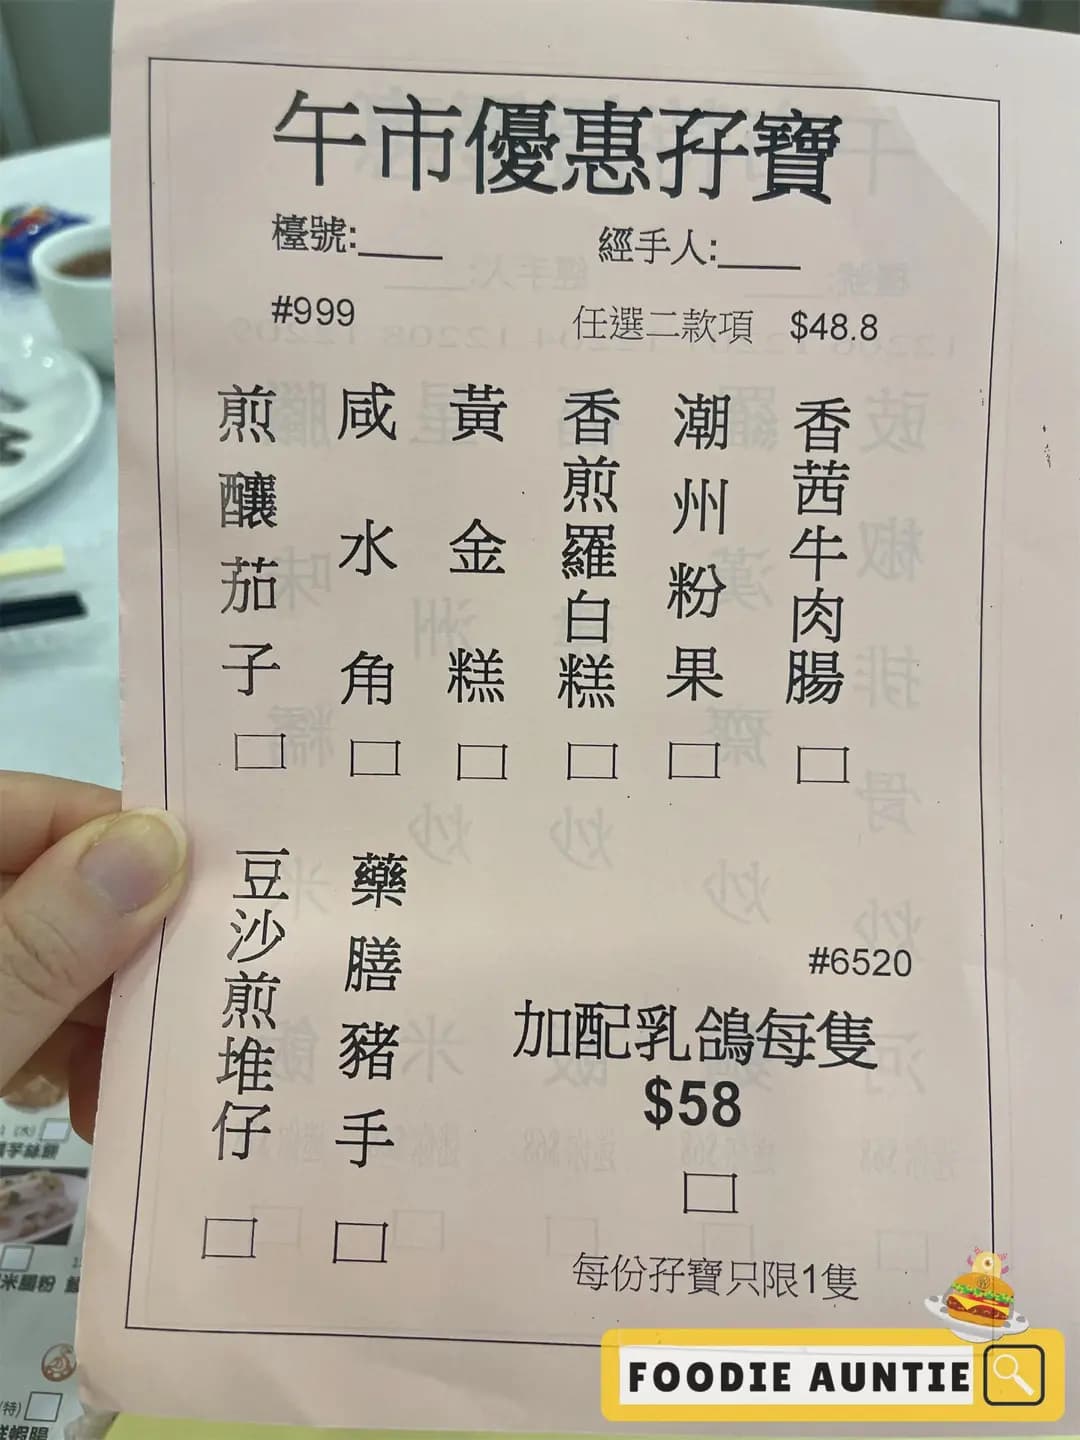 午市優惠孖寶
檯號:____ 經手人:____
#999 任選二款項 $48.8
香茜牛肉腸
潮州粉果
香煎羅白糕
黃金糕
咸水角
煎釀茄子
藥膳豬手
豆沙煎堆仔
#6520
加配乳鴿每隻
$58
每份孖寶只限1隻
FOODIE AUNTIE